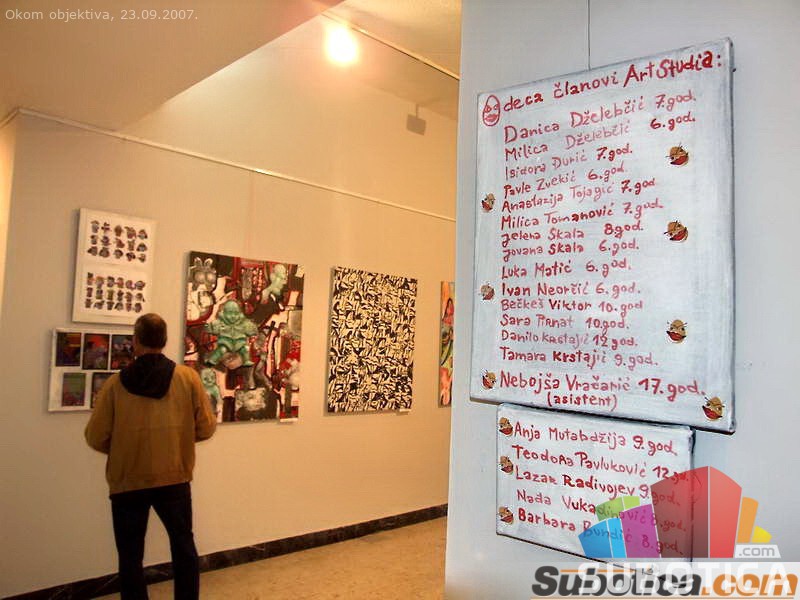 Okom objektiva, 23.09.2007.
deca članovi Art Studia:
Danica Dželebčić 7.god.
Milica Dželebčić 6.god.
Isidora Durić 7.god.
Pavle Zvekić 6.god.
Anastazija Tojagić 7.god.
Milica Tomanović 7.god.
Jelena Skala 8god.
Jovana Skala 6.god.
Luka Matić 6.god.
Ivan Neorčić 6.god.
Bečkeš Viktor 10.god
Sara Pirnat 10.god.
Danilo Krstajić 12.god.
Tamara Krstajić 9.god.
Nebojša Vračarić 17.god.
(asistent)
Anja Mutabdžija 9.god.
Teodora Pavluković 12.go
Lazar Radivojev 9.god.
Nada Vukadinović 8.god.
Barbara 8.god.
.com
SUBOTICA
Subotica.com